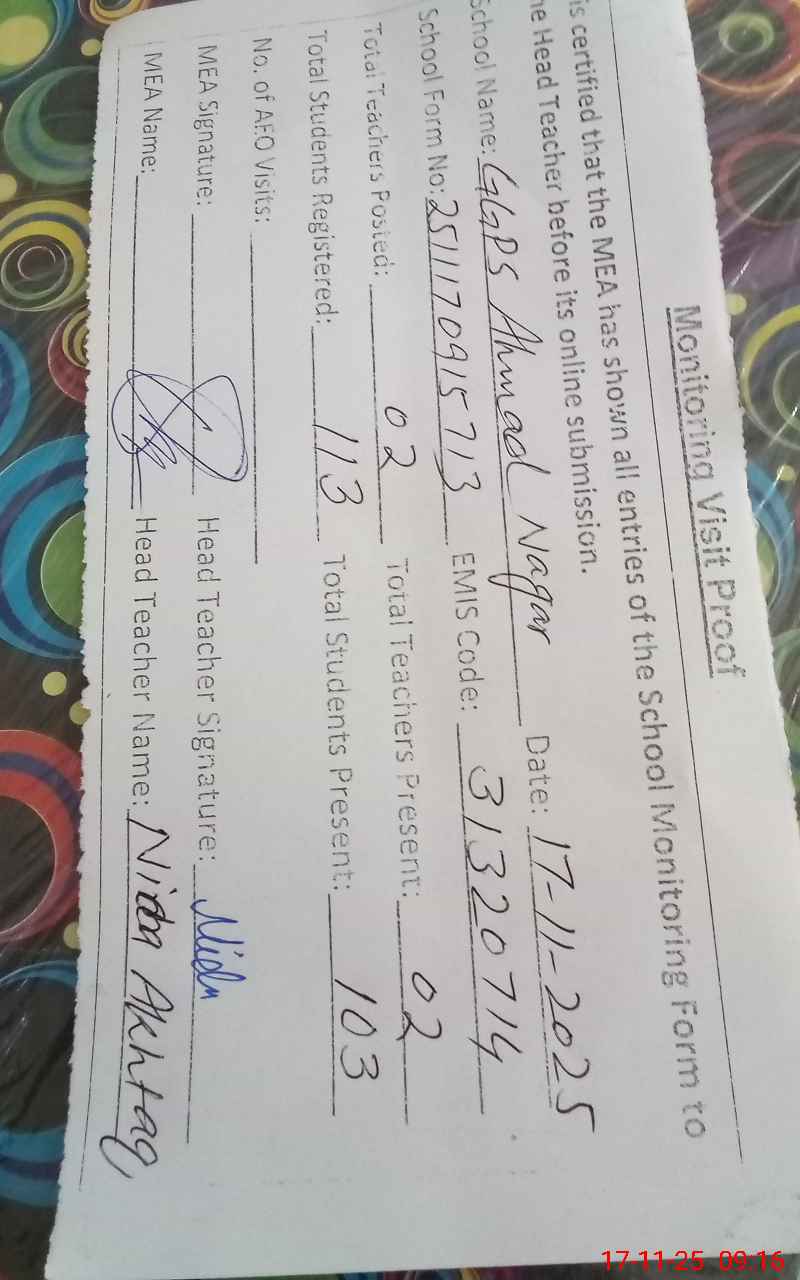 Monitoring Visit Proof
is certified that the MEA has shown all entries of the School Monitoring Form to
he Head Teacher before its online submission.
School Name: GGPS Ahmad Nagar Date: 17-11-2025
School Form No: 2511170915713 EMIS Code: 31320714
Total Teachers Posted: 02 Total Teachers Present: 02
Total Students Registered: 113 Total Students Present: 103
No. of AEO Visits:
MEA Signature: Head Teacher Signature: Nida
MEA Name: Head Teacher Name: Nida Akhtar
17-11-25 09:16